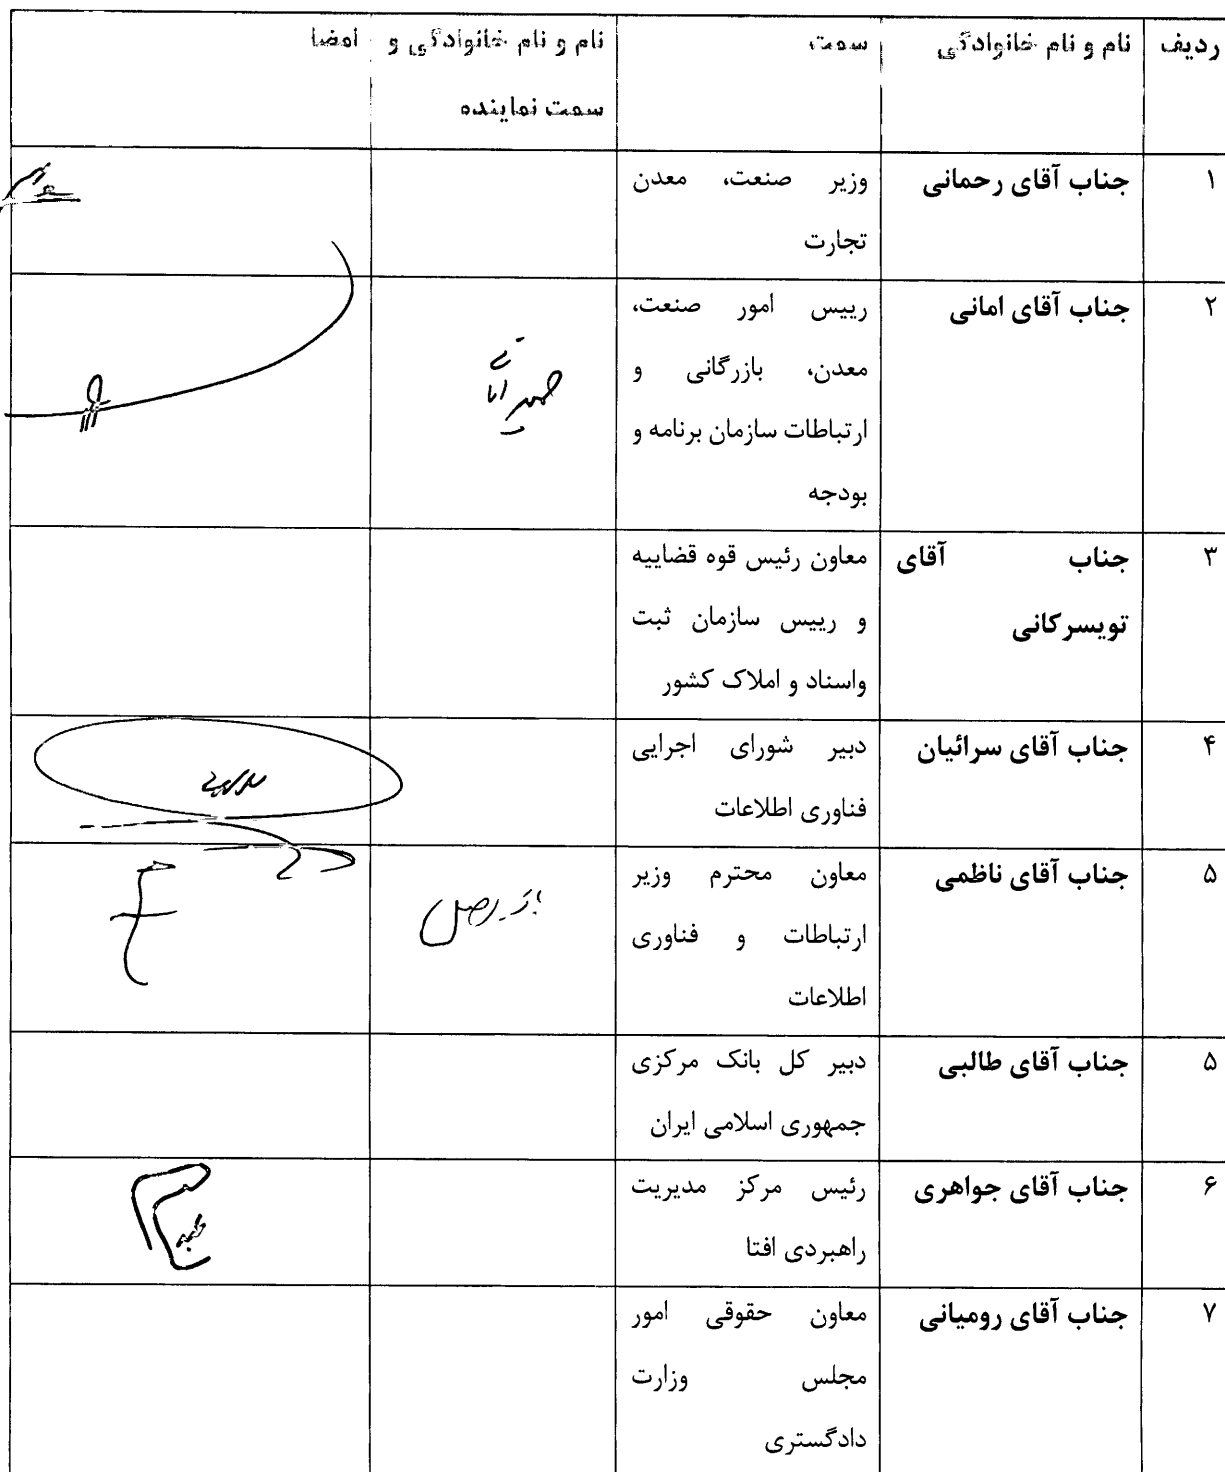 ردیف
نام و نام خانوادگی
سمت
نام و نام خانوادگی و
سمت نماینده
امضا
۱
جناب آقای رحمانی
وزیر صنعت، معدن
تجارت
۲
جناب آقای امانی
رییس امور صنعت،
معدن، بازرگانی و
ارتباطات سازمان برنامه و
بودجه
۳
جناب آقای
تویسرکانی
معاون رئیس قوه قضاییه
و رییس سازمان ثبت
واسناد و املاک کشور
۴
جناب آقای سرائیان
دبیر شورای اجرایی
فناوری اطلاعات
۵
جناب آقای ناظمی
معاون محترم وزیر
ارتباطات و فناوری
اطلاعات
۵
جناب آقای طالبی
دبیر کل بانک مرکزی
جمهوری اسلامی ایران
۶
جناب آقای جواهری
رئیس مرکز مدیریت
راهبردی افتا
۷
جناب آقای رومیانی
معاون حقوقی امور
مجلس وزارت
دادگستری